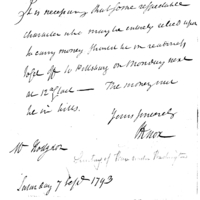 It is necessary that some respectable
character who may be entirely relied upon
to carry money should be in readiness
to set off to Pittsburg on Monday next
at 12 oClock — The money must
be in bills.
Yours sincerely
HKnox
Mr Hodgson
Secretary of War under Washington
Saturday 7 Sepr 1793